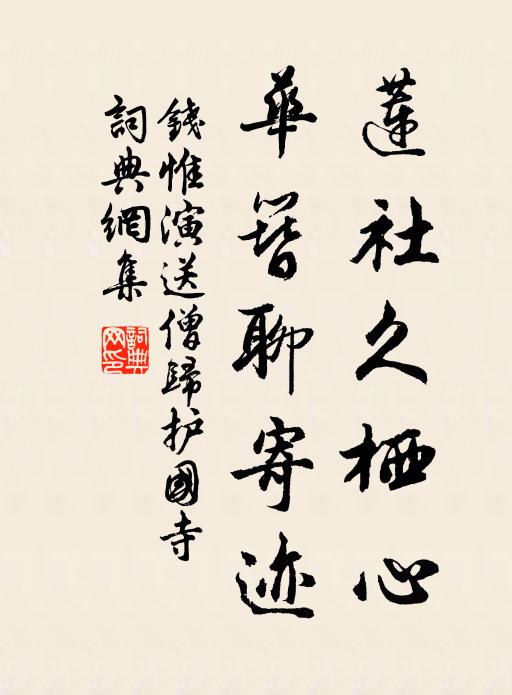 蓮社久栖心
華簪聊寄迹
錢惟演送僧歸护國寺
詞典網集
詞典網印